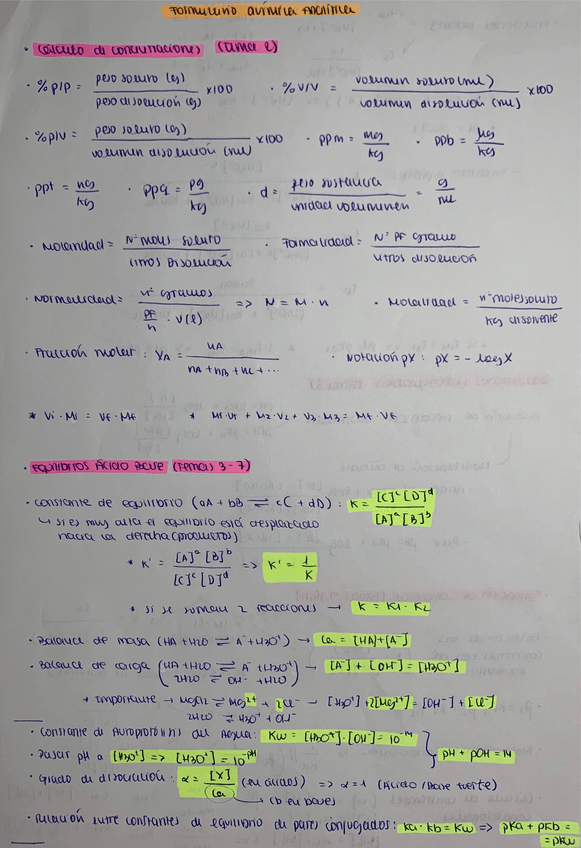 FORMULARIO QUÍMICA ANALÍTICA
· Cálculo de concentraciones (Tema 2)
· % p/p = peso soluto (g) / peso disolución (g) x100 · % v/v = volumen soluto (mL) / volumen disolución (mL) x100
· % p/v = peso soluto (g) / volumen disolución (mL) x100 · ppm = mg/kg · ppb = µg/kg
· ppt = ng/kg · ppq = pg/kg · d = peso sustancia / unidad volumen = g/mL
· Molaridad = Nº moles soluto / litros Disolución · Formalidad = Nº PF gramo / litros disolución
· Normalidad = nº gramos / (PF/n · V(l)) => N = M · n · Molalidad = nº moles soluto / kg disolvente
· Fracción molar: XA = nA / nA + nB + nC + ... · Notación pX: pX = - log X
* Vi · Mi = Vf · Mf * M1·V1 + M2·V2 + V3·M3 = Mf · Vf
· Equilibrios Ácido Base (Temas 3-7)
· Constante de equilibrio (aA + bB ⇌ cC + dD): K = [C]^c [D]^d / [A]^a [B]^b
↳ si es muy alta el equilibrio está desplazado
hacia la derecha (productos)
* K' = [A]^a [B]^b / [C]^c [D]^d => K' = 1/K
* si se suman 2 reacciones → K = K1 · K2
· Balance de masa (HA + H2O ⇌ A⁻ + H3O⁺) → Ca = [HA] + [A⁻]
· Balance de carga (HA + H2O ⇌ A⁻ + H3O⁺) → [A⁻] + [OH⁻] = [H3O⁺]
2H2O ⇌ OH⁻ + H3O⁺
* Importante → MgCl2 ⇌ Mg²⁺ + 2Cl⁻ → [H3O⁺] + 2[Mg²⁺] = [OH⁻] + [Cl⁻]
2H2O ⇌ H3O⁺ + OH⁻
· Constante de Autoprotólisis del Agua: Kw = [H3O⁺]·[OH⁻] = 10⁻¹⁴
· Pasar pH a [H3O⁺] => [H3O⁺] = 10^-pH } pH + pOH = 14
· Grado de disociación: α = [X] / Ca (en ácidos) => α = 1 (Ácido/Base fuerte)
→ Cb en bases
· Relación entre constantes de equilibrio de pares conjugados: Ka · Kb = Kw => pKa + pKb =
= pKw